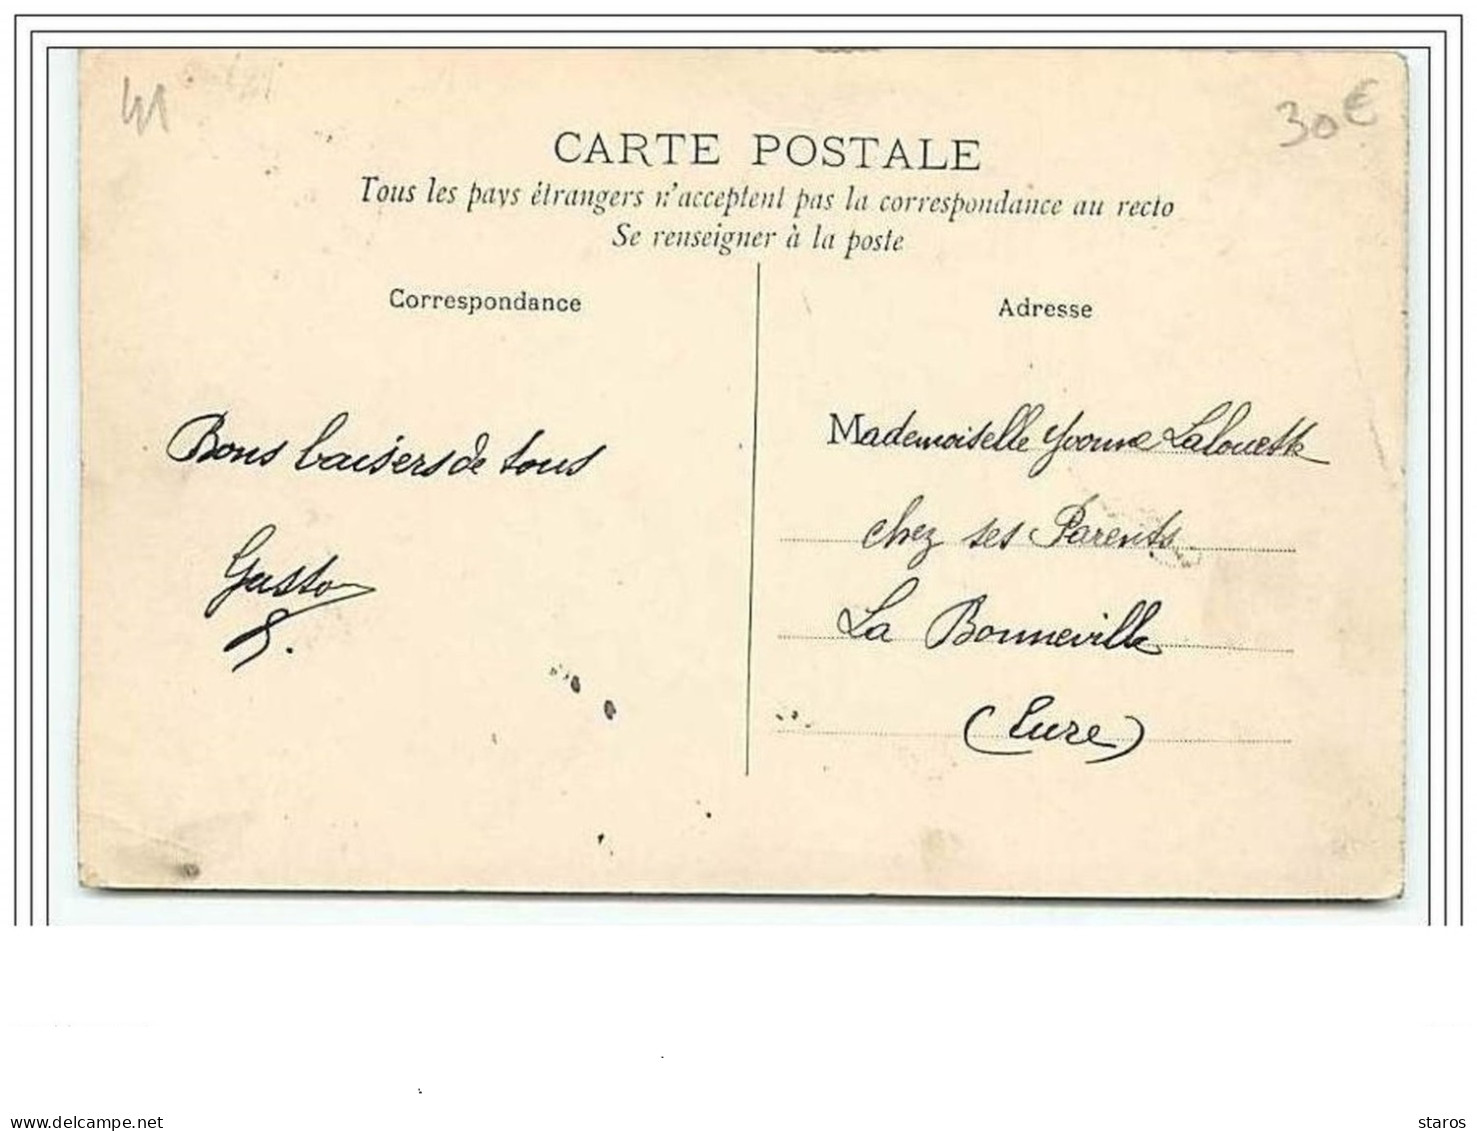 41
30€
CARTE POSTALE
Tous les pays étrangers n'acceptent pas la correspondance au recto
Se renseigner à la poste
Correspondance
Adresse
Bons baisers de tous
Gaston
S.
Mademoiselle Yvonne Lalouette
chez ses Parents
La Bonneville
(Eure)
www.delcampe.net
staros